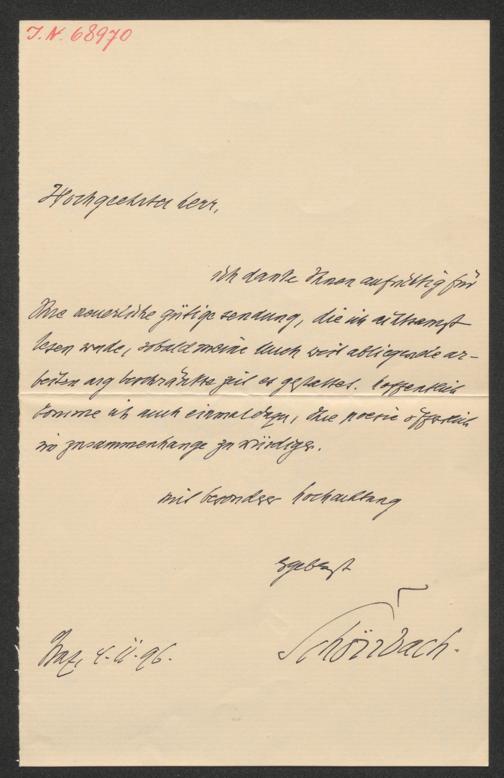 J.N. 68970
Hochgeehrter herr,
ich danke Ihnen aufrichtig für
Ihre neuerliche gütige sendung, die ich achtsamst
lesen werde, sobald meine durch weit abliegende ar-
beiten arg beschränkte zeit es gestattet. hoffentlich
komme ich auch einmal dazu, Ihre poesie öffentlich
im zusammenhange zu würdigen.
mit besonderer hochachtung
ergebenst
Schönbach.
Graz, 4. II. 96.